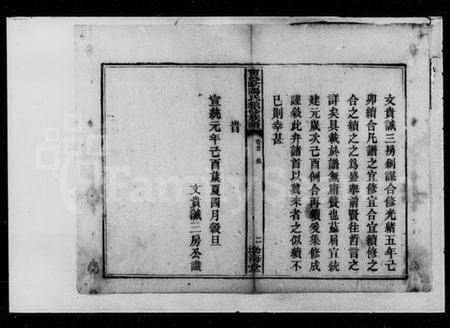 文貴誠三房創謀合修光緒五年己
卯續合凡譜之宜修宜合宜續修之
合之續之之為盛舉前賢往哲言之
詳矣具載於譜無庸贅也茲屆宣統
建元歲次己酉例合再續爰集修成
謹敘此弁諸首以冀來者之似續不
已則幸甚
旹
宣統元年己酉歲夏四月穀旦
文貴誠三房公識
氏續修族譜
卷首
二
渤海堂
FamilySearch